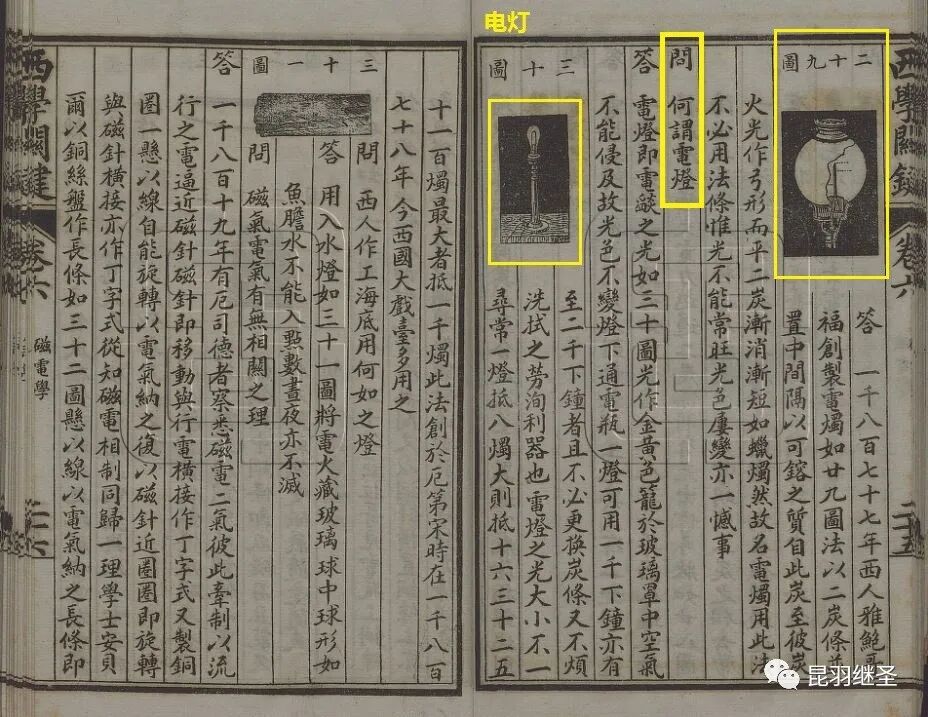 电灯
西學關鍵 卷六 二十五
二十九圖
答 一千八百七十七年西人雅鮑
福創製電燭如廿九圖法以二炭條並
置中間隔以可鎔之質自此炭至彼炭
火光作弓形而平二炭漸消漸短如蠟燭然故名電燭用此法
不必用法條惟光不能常旺光色屢變亦一憾事
問 何謂電燈
答 電燈即電燄之光如三十圖光作金黃色籠於玻璃罩中空氣
不能侵及故光色不變燈下通電瓶一燈可用一千下鐘亦有
三十圖
至二千下鐘者且不必更換炭條又不煩
洗拭之勞洵利器也電燈之光大小不一
尋常一燈抵八燭大則抵十六三十二五
十一百燭最大者抵一千燭此法創於厄第宋時在一千八百
七十八年今西國大戲臺多用之
三十一圖
問 西人作工海底用何如之燈
答 用入水燈如三十一圖將電火藏玻璃球中球形如
魚膽水不能入點數晝夜亦不滅
問 磁氣電氣有無相關之理
答 一千八百十九年有厄司德者察悉磁電二氣彼此牽制以流
行之電逼近磁針磁針即移動與行電橫接作丁字式又製銅
圈一懸以線自能旋轉以電氣納之復以磁針近圈圈即旋轉
與磁針橫接亦作丁字式從知磁電相制同歸一理學士安貝
爾以銅絲盤作長條如三十二圖懸以線以電氣納之長條即
西學關鍵 卷六 磁電學 二十六
昆羽继圣